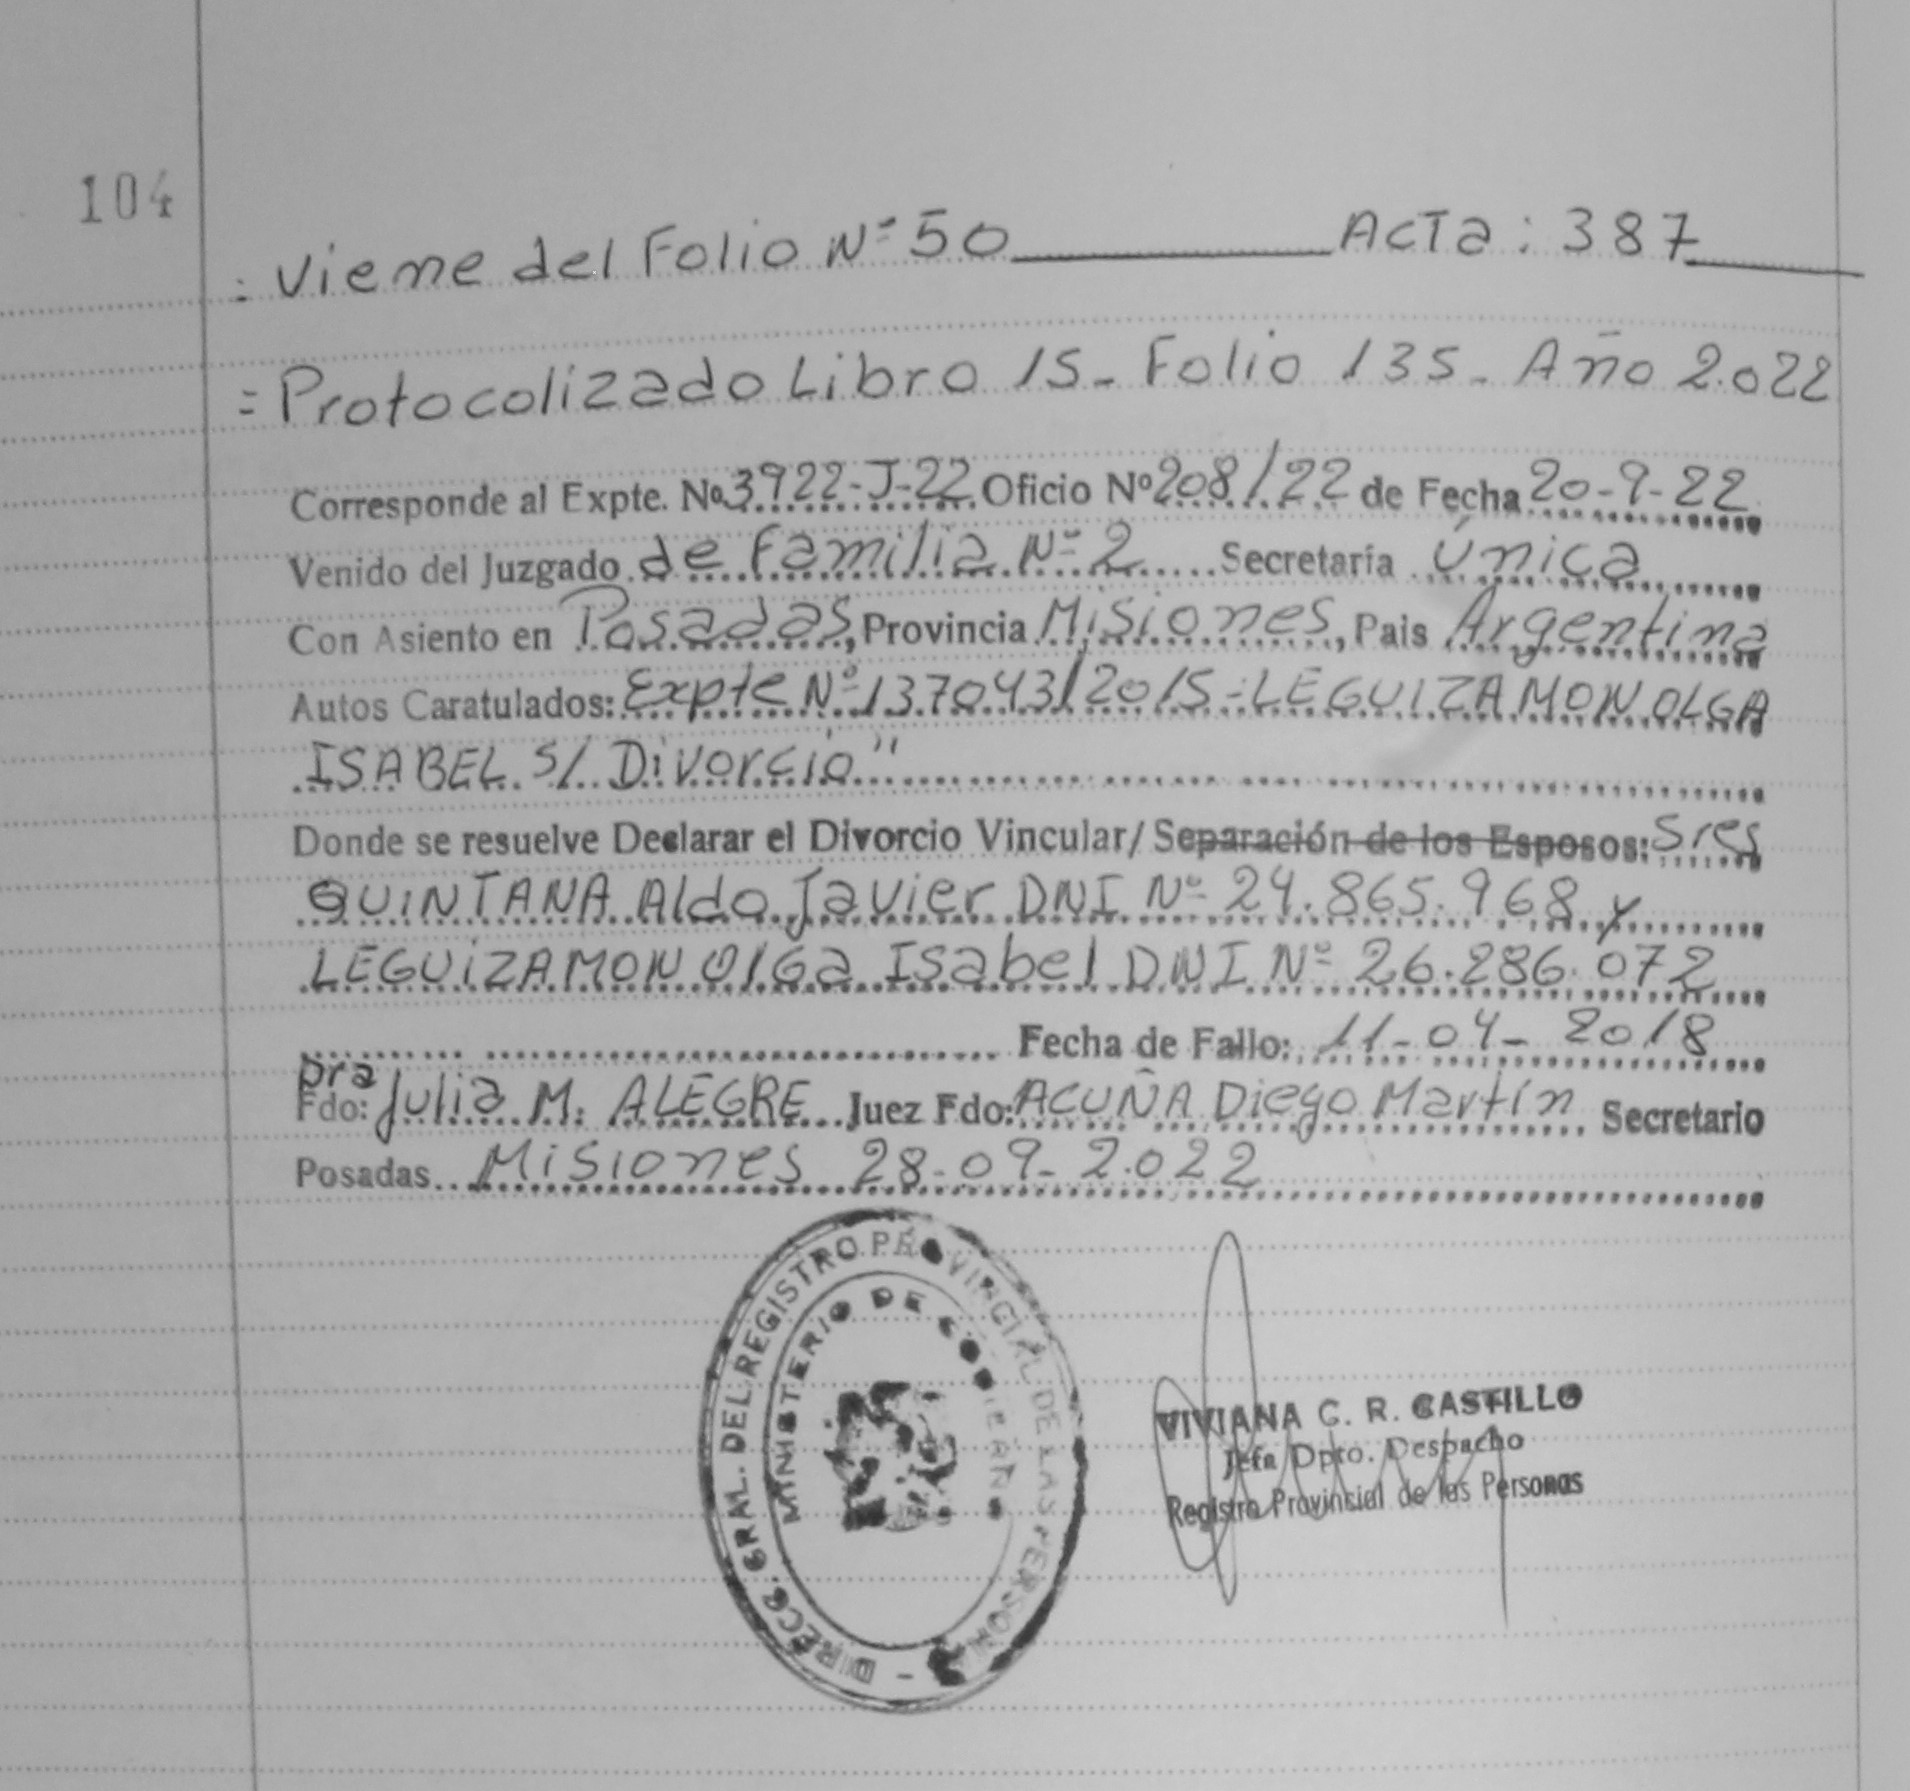 104
= Viene del Folio Nº 50 ACTa: 387
= Protocolizado Libro 15 - Folio 135 - Año 2.022
Corresponde al Expte. No. 3922-J-22 Oficio Nº 208/22 de Fecha 20-9-22
Venido del Juzgado de Familia Nº 2 Secretaría Única
Con Asiento en Posadas, Provincia Misiones, Pais Argentina
Autos Caratulados: Expte Nº 137043/2015 - LEGUIZAMON OLGA
ISABEL S/ Divorcio"
Donde se resuelve Declarar el Divorcio Vincular/ Separación de los Esposos: Sres
QUINTANA Aldo Javier DNI Nº 24.865.968 y
LEGUIZAMON OlGa ISabel DNI Nº 26.286.072
Fecha de Fallo: 11-04-2018
Dra
Fdo: Julia M. ALEGRE Juez Fdo: ACUÑA Diego Martín Secretario
Posadas Misiones 28-09-2.022
DIRECC. GRAL. DEL REGISTRO PROVINCIAL DE LAS PERSONAS -
MINISTERIO DE GOBIERNO
VIVIANA C. R. CASTILLO
Jefa Dpto. Despacho
Registro Provincial de las Personas